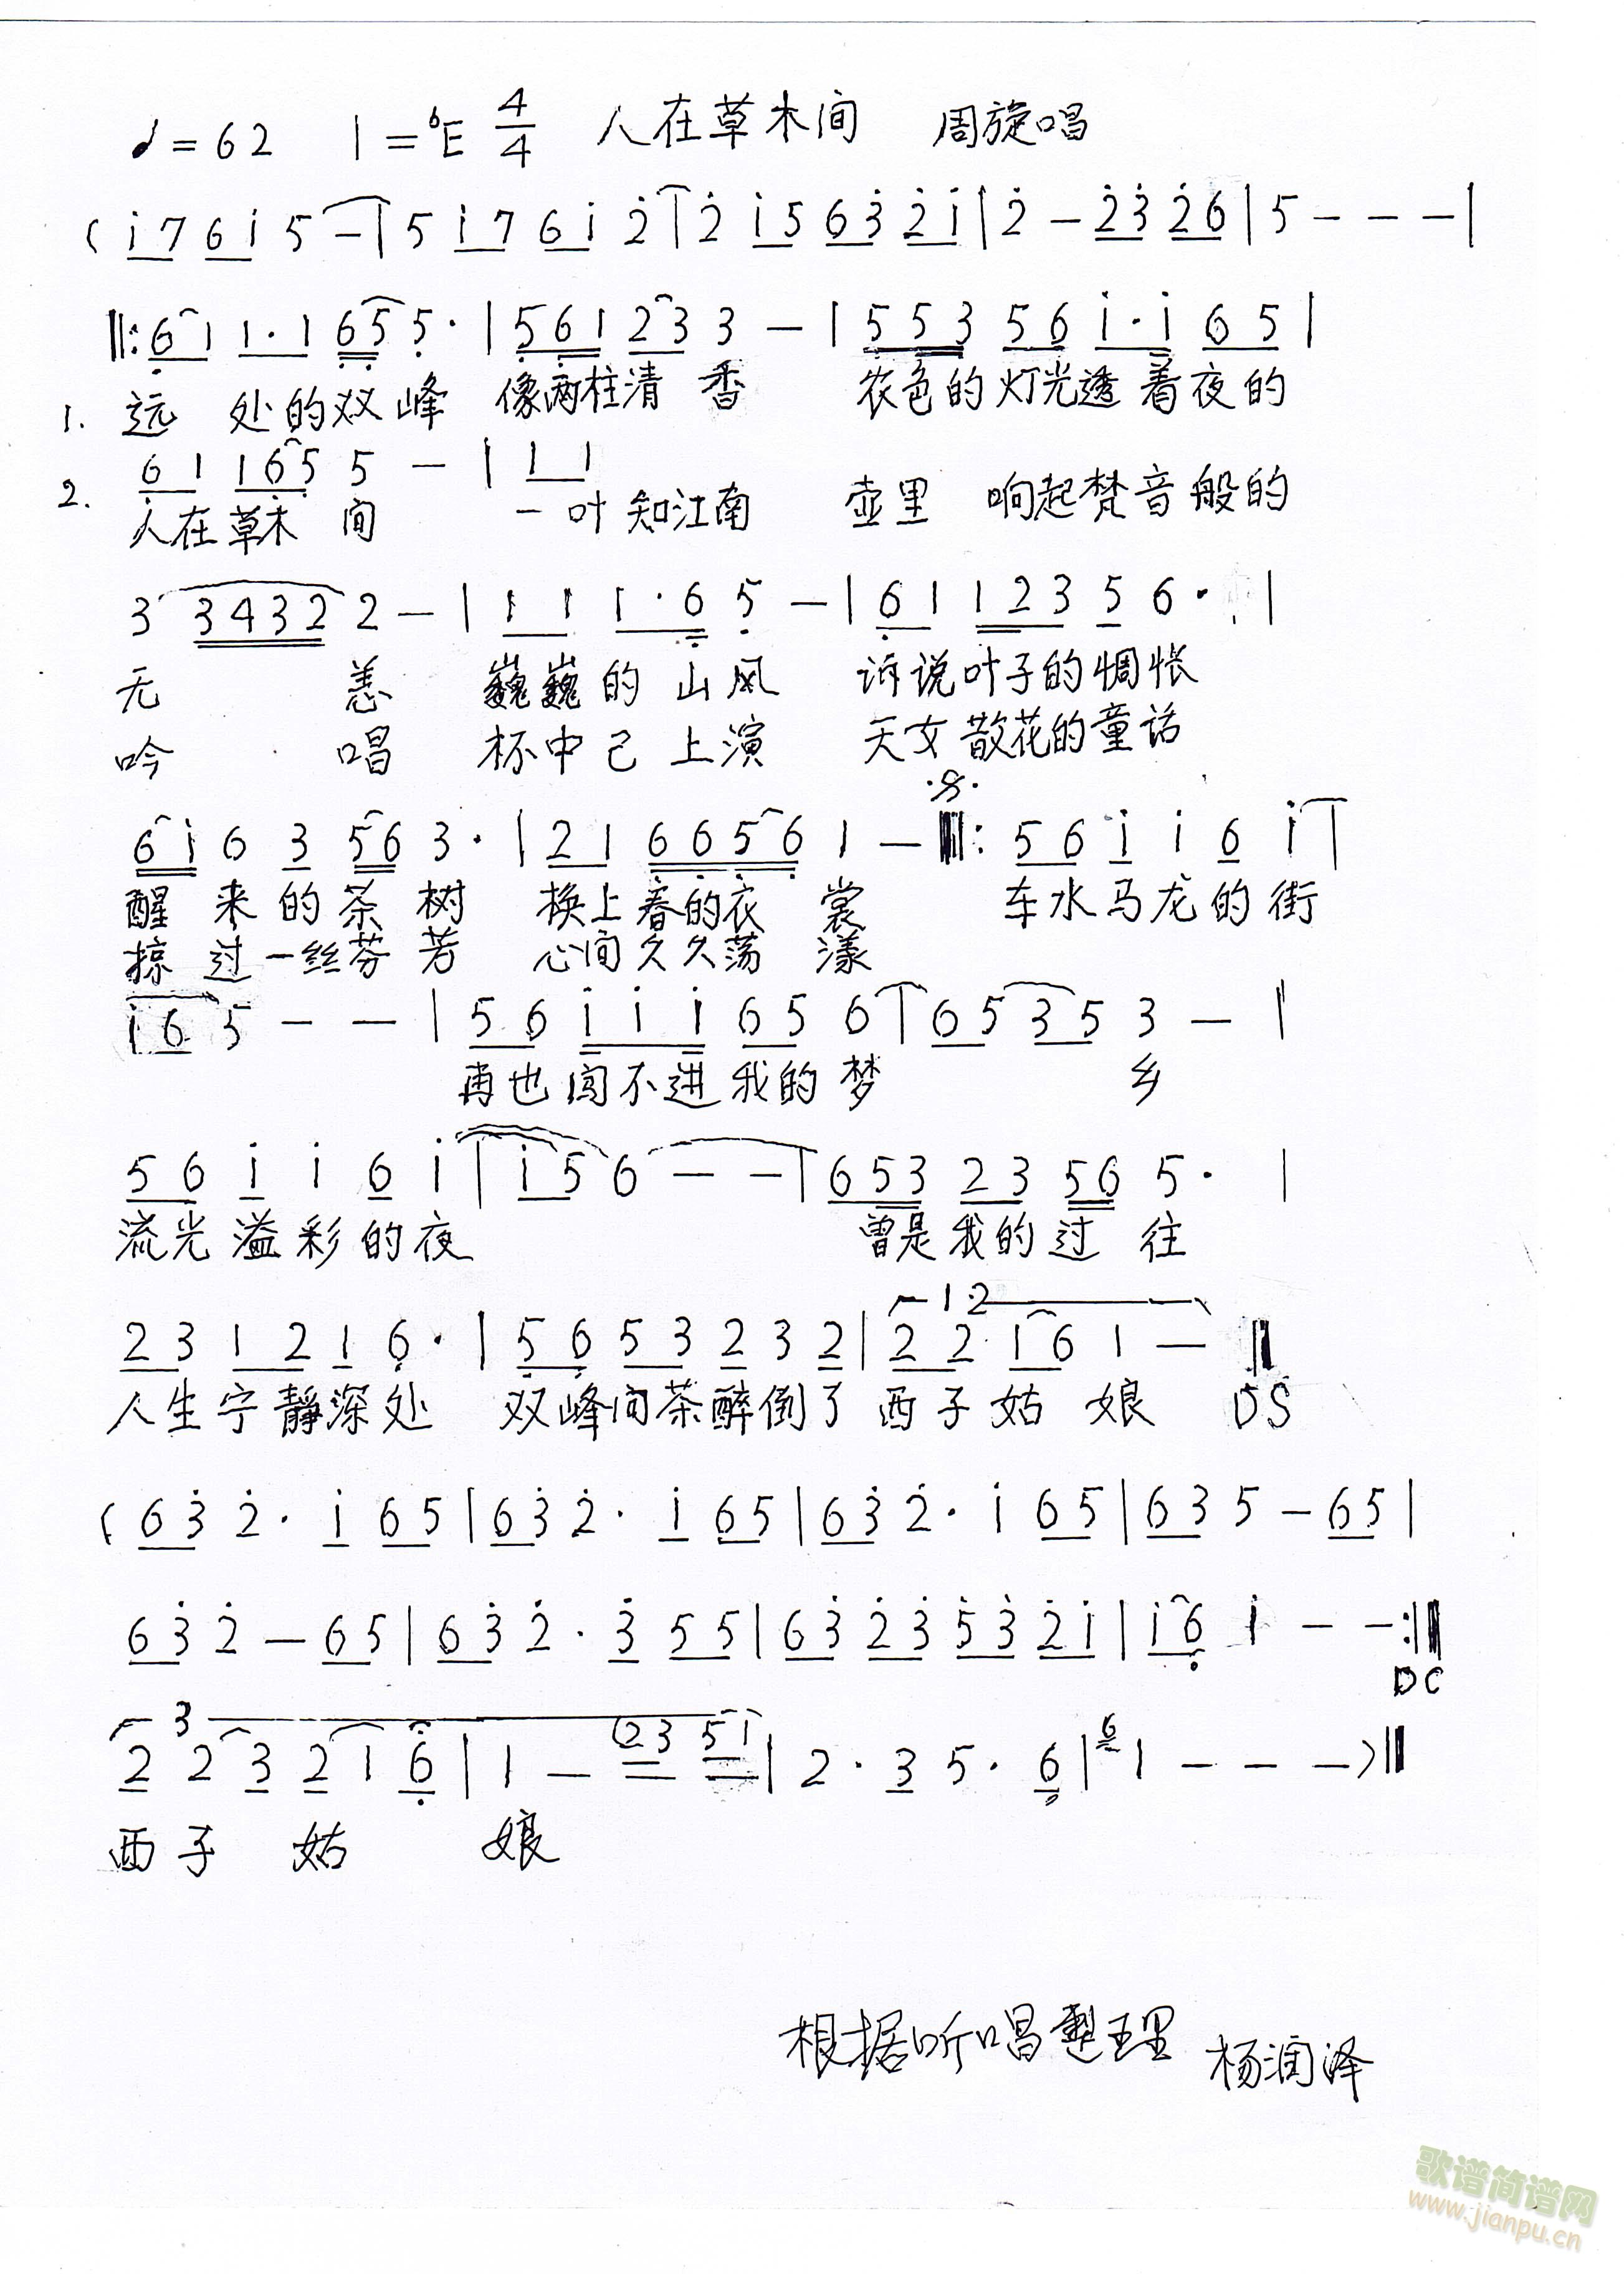 ♩=62 1=ᵇE 4/4 人在草木间 周旋唱
( i̇ 7 6 i̇ 5 – | 5 i̇ 7 6 i̇ 2̇ | 2̇ i̇ 5 6 3̇ 2̇ i̇ | 2̇ – 2̇ 3̇ 2̇ 6 | 5 – – – |
‖: 6̣ 1 1 · 1 6̣ 5̣ 5̣ · | 5̣ 6̣ 1 2 3 3 – | 5̣ 5 3 5 6 i̇ · i̇ 6 5 |
1. 远 处的双峰 像两柱清 香 农色的灯光透着夜的
6̣ 1 1 6̣ 5̣ 5 – | 1 1
2. 人在草木 间 一叶知江南 壶里 响起梵音般的
3 3 4 3 2 2 – | 1 1 1 · 6̣ 5̣ – | 6̣ 1 1 2 3 5 6 · |
无 恙 巍巍的 山风 诉说叶子的惆怅
吟 唱 杯中己 上演 天女散花的童话
6 i̇ 6 3 5 6 3 · | 2 1 6̣ 6̣ 5̣ 6̣ 1 – ‖: 5 6 i̇ i̇ 6 i̇ |
醒 来的茶 树 换上春的衣 裳 车水马龙的街
掠 过一丝芬 芳 心间久久荡 漾
i̇ 6 5 – – | 5 6 i̇ i̇ i̇ 6 5 6 | 6 5 3 5 3 – |
再也闯不进我的梦 乡
5 6 i̇ i̇ 6 i̇ | i̇ 5 6 – – | 6 5 3 2 3 5 6 5 · |
流光溢彩的夜 曾是我的过 往
1.2
2 3 1 2 1 6̣ · | 5̣ 6̣ 5 3 2 3 2 | 2 2 1 6 1 – ‖
人生宁静深处 双峰间茶醉倒了 西子姑 娘 DS
( 6 3̇ 2̇ · i̇ 6 5 | 6 3̇ 2̇ · i̇ 6 5 | 6 3̇ 2̇ · i̇ 6 5 | 6 3 5 – 6 5 |
6 3̇ 2̇ – 6 5 | 6 3̇ 2̇ · 3̇ 5 5 | 6 3̇ 2̇ 3̇ 5̇ 3̇ 2̇ i̇ | i̇ 6̣ i̇ – – :‖
DC
3
2 2 3 2 1 6̣ | 1 – (2 3 5 i̇ | 2 · 3 5 · 6̣ | ⁶1 – – – ) ‖
西子 姑 娘
根据听唱整理 杨润泽
歌谱简谱网
www.jianpu.cn